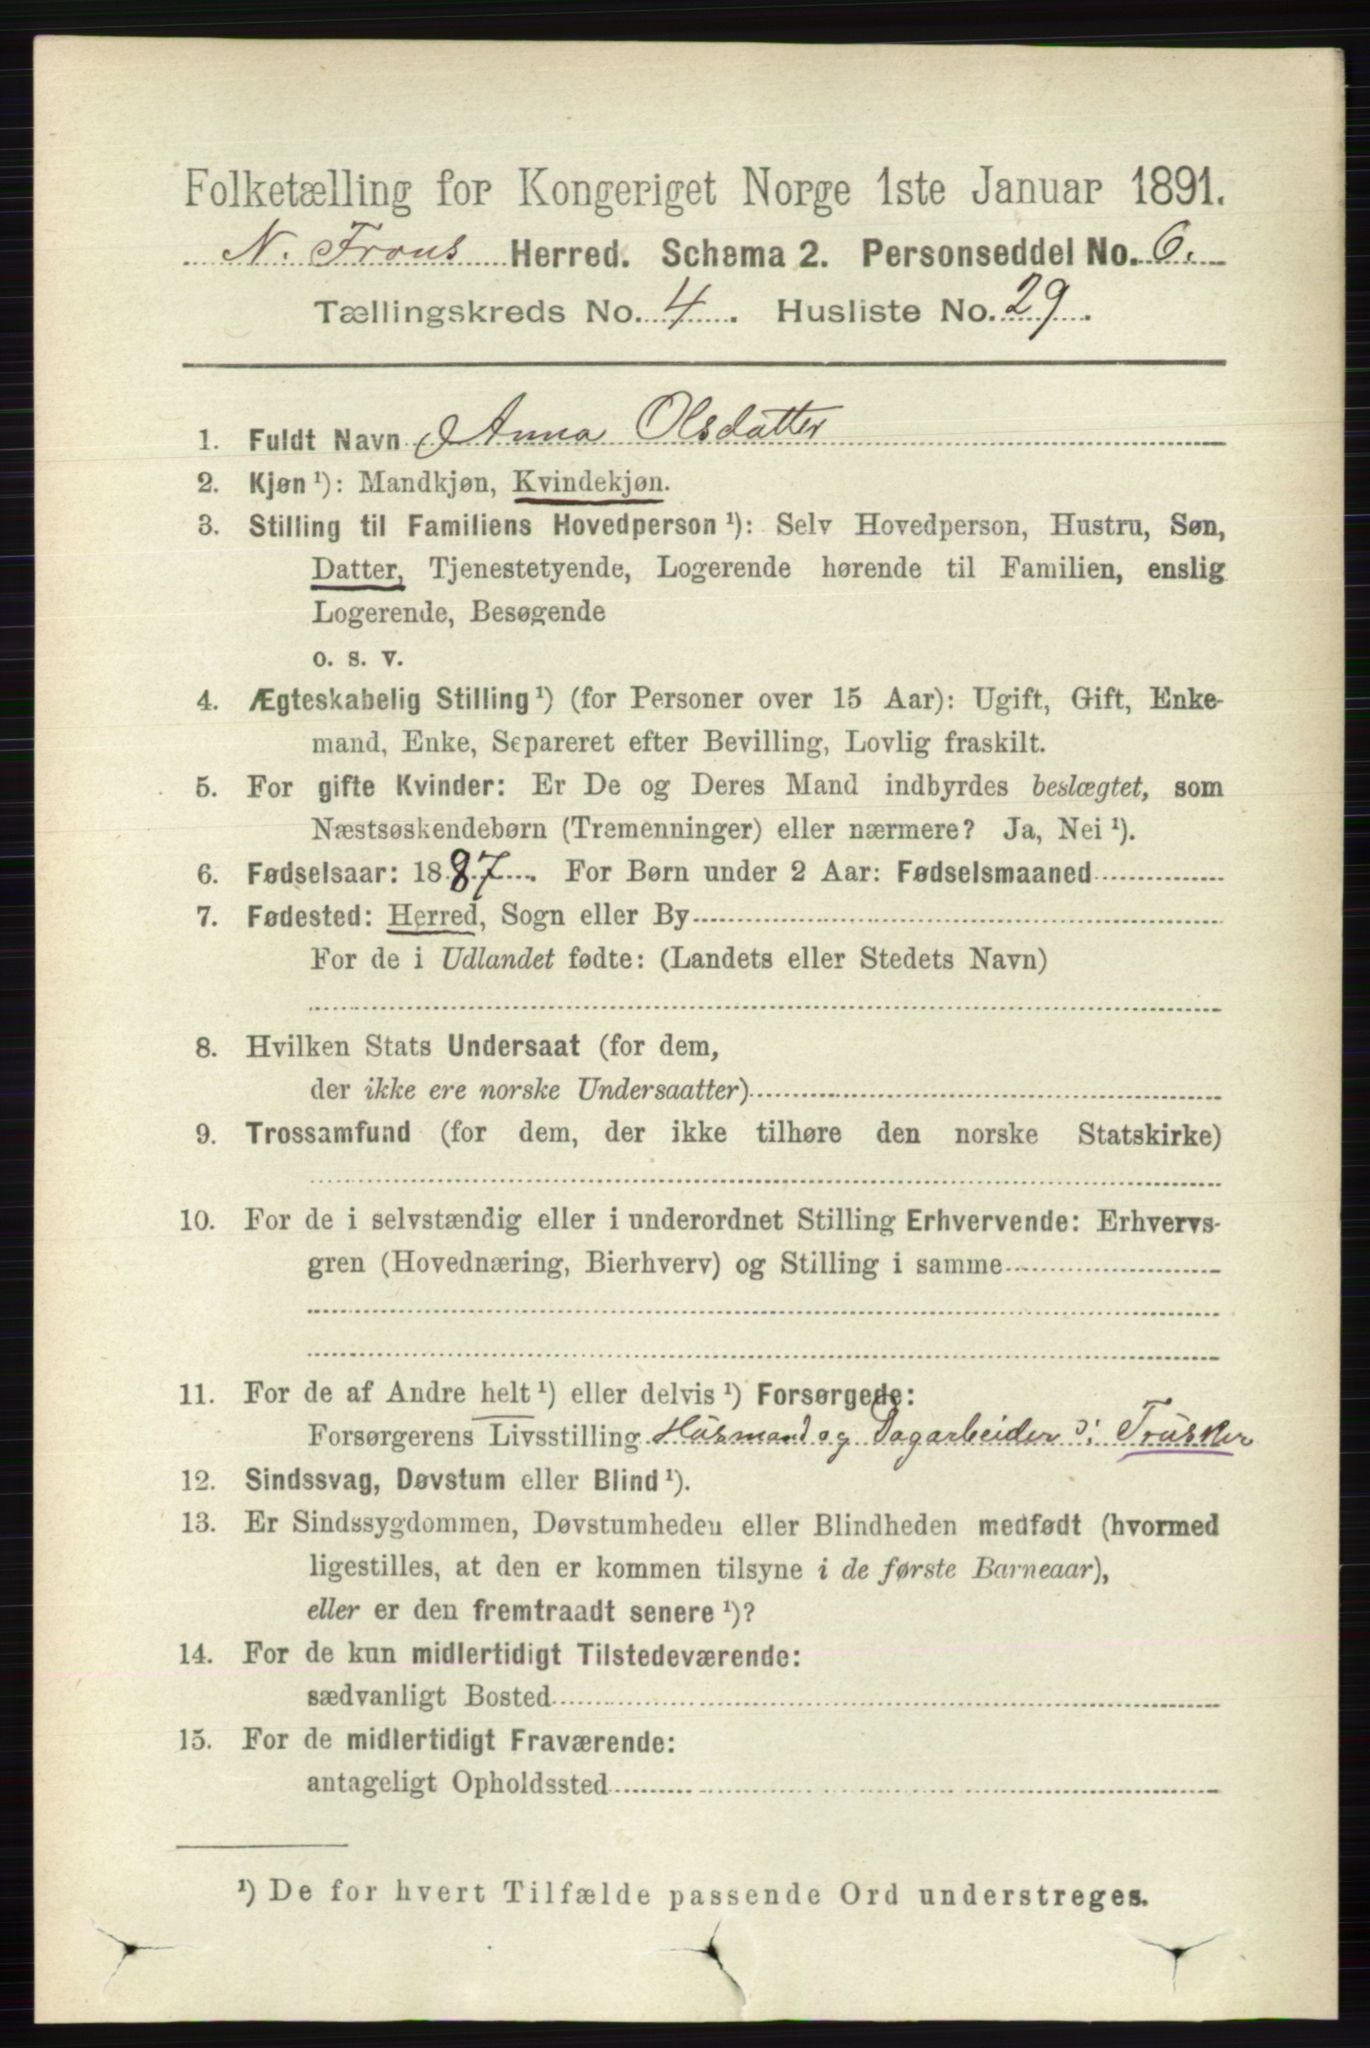 Folketælling for Kongeriget Norge 1ste Januar 1891.
N. Frons Herred. Schema 2. Personseddel No. 6.
Tællingskreds No. 4. Husliste No. 29.
1. Fuldt Navn Anna Olsdatter
2. Kjøn ¹): Mandkjøn, Kvindekjøn.
3. Stilling til Familiens Hovedperson ¹): Selv Hovedperson, Hustru, Søn,
Datter, Tjenestetyende, Logerende hørende til Familien, enslig
Logerende, Besøgende
o. s. v.
4. Ægteskabelig Stilling ¹) (for Personer over 15 Aar): Ugift, Gift, Enke-
mand, Enke, Separeret efter Bevilling, Lovlig fraskilt.
5. For gifte Kvinder: Er De og Deres Mand indbyrdes beslægtet, som
Næstsøskendebørn (Tremenninger) eller nærmere? Ja, Nei ¹).
6. Fødselsaar: 1887. For Børn under 2 Aar: Fødselsmaaned
7. Fødested: Herred, Sogn eller By
For de i Udlandet fødte: (Landets eller Stedets Navn)
8. Hvilken Stats Undersaat (for dem,
der ikke ere norske Undersaatter)
9. Trossamfund (for dem, der ikke tilhøre den norske Statskirke)
10. For de i selvstændig eller i underordnet Stilling Erhvervende: Erhvervs-
gren (Hovednæring, Bierhverv) og Stilling i samme
11. For de af Andre helt ¹) eller delvis ¹) Forsørgede:
Forsørgerens Livsstilling Husmand og Dagarbeider i
12. Sindssvag, Døvstum eller Blind ¹).
13. Er Sindssygdommen, Døvstumheden eller Blindheden medfødt (hvormed
ligestilles, at den er kommen tilsyne i de første Barneaar),
eller er den fremtraadt senere ¹)?
14. For de kun midlertidigt Tilstedeværende:
sædvanligt Bosted
15. For de midlertidigt Fraværende:
antageligt Opholdssted
¹) De for hvert Tilfælde passende Ord understreges.